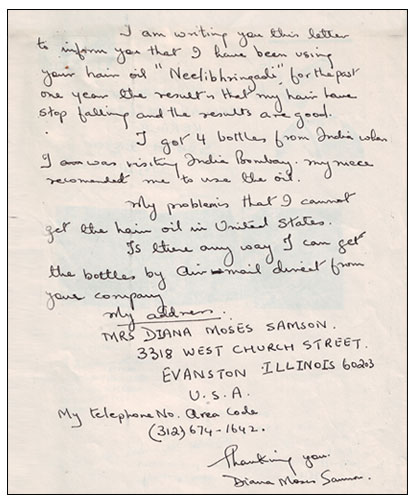 I am writing you this letter
to inform you that I have been using
your hair oil "Neelibhringadi", for the past
one year the result is that my hair have
stop falling and the results are good.
I got 4 bottles from India when
I am was visiting India Bombay. my niece
recomended me to use the oil.
My problem is that I cannot
get the hair oil in United States.
Is there any way I can get
the bottles by Air-mail direct from
your company
My address.
MRS DIANA MOSES SAMSON.
3318 WEST CHURCH STREET.
EVANSTON ILLINOIS 60203
U.S.A.
My telephone No. Area Code
(312) 674-1642.
Thanking you.
Diana Moses Samson.